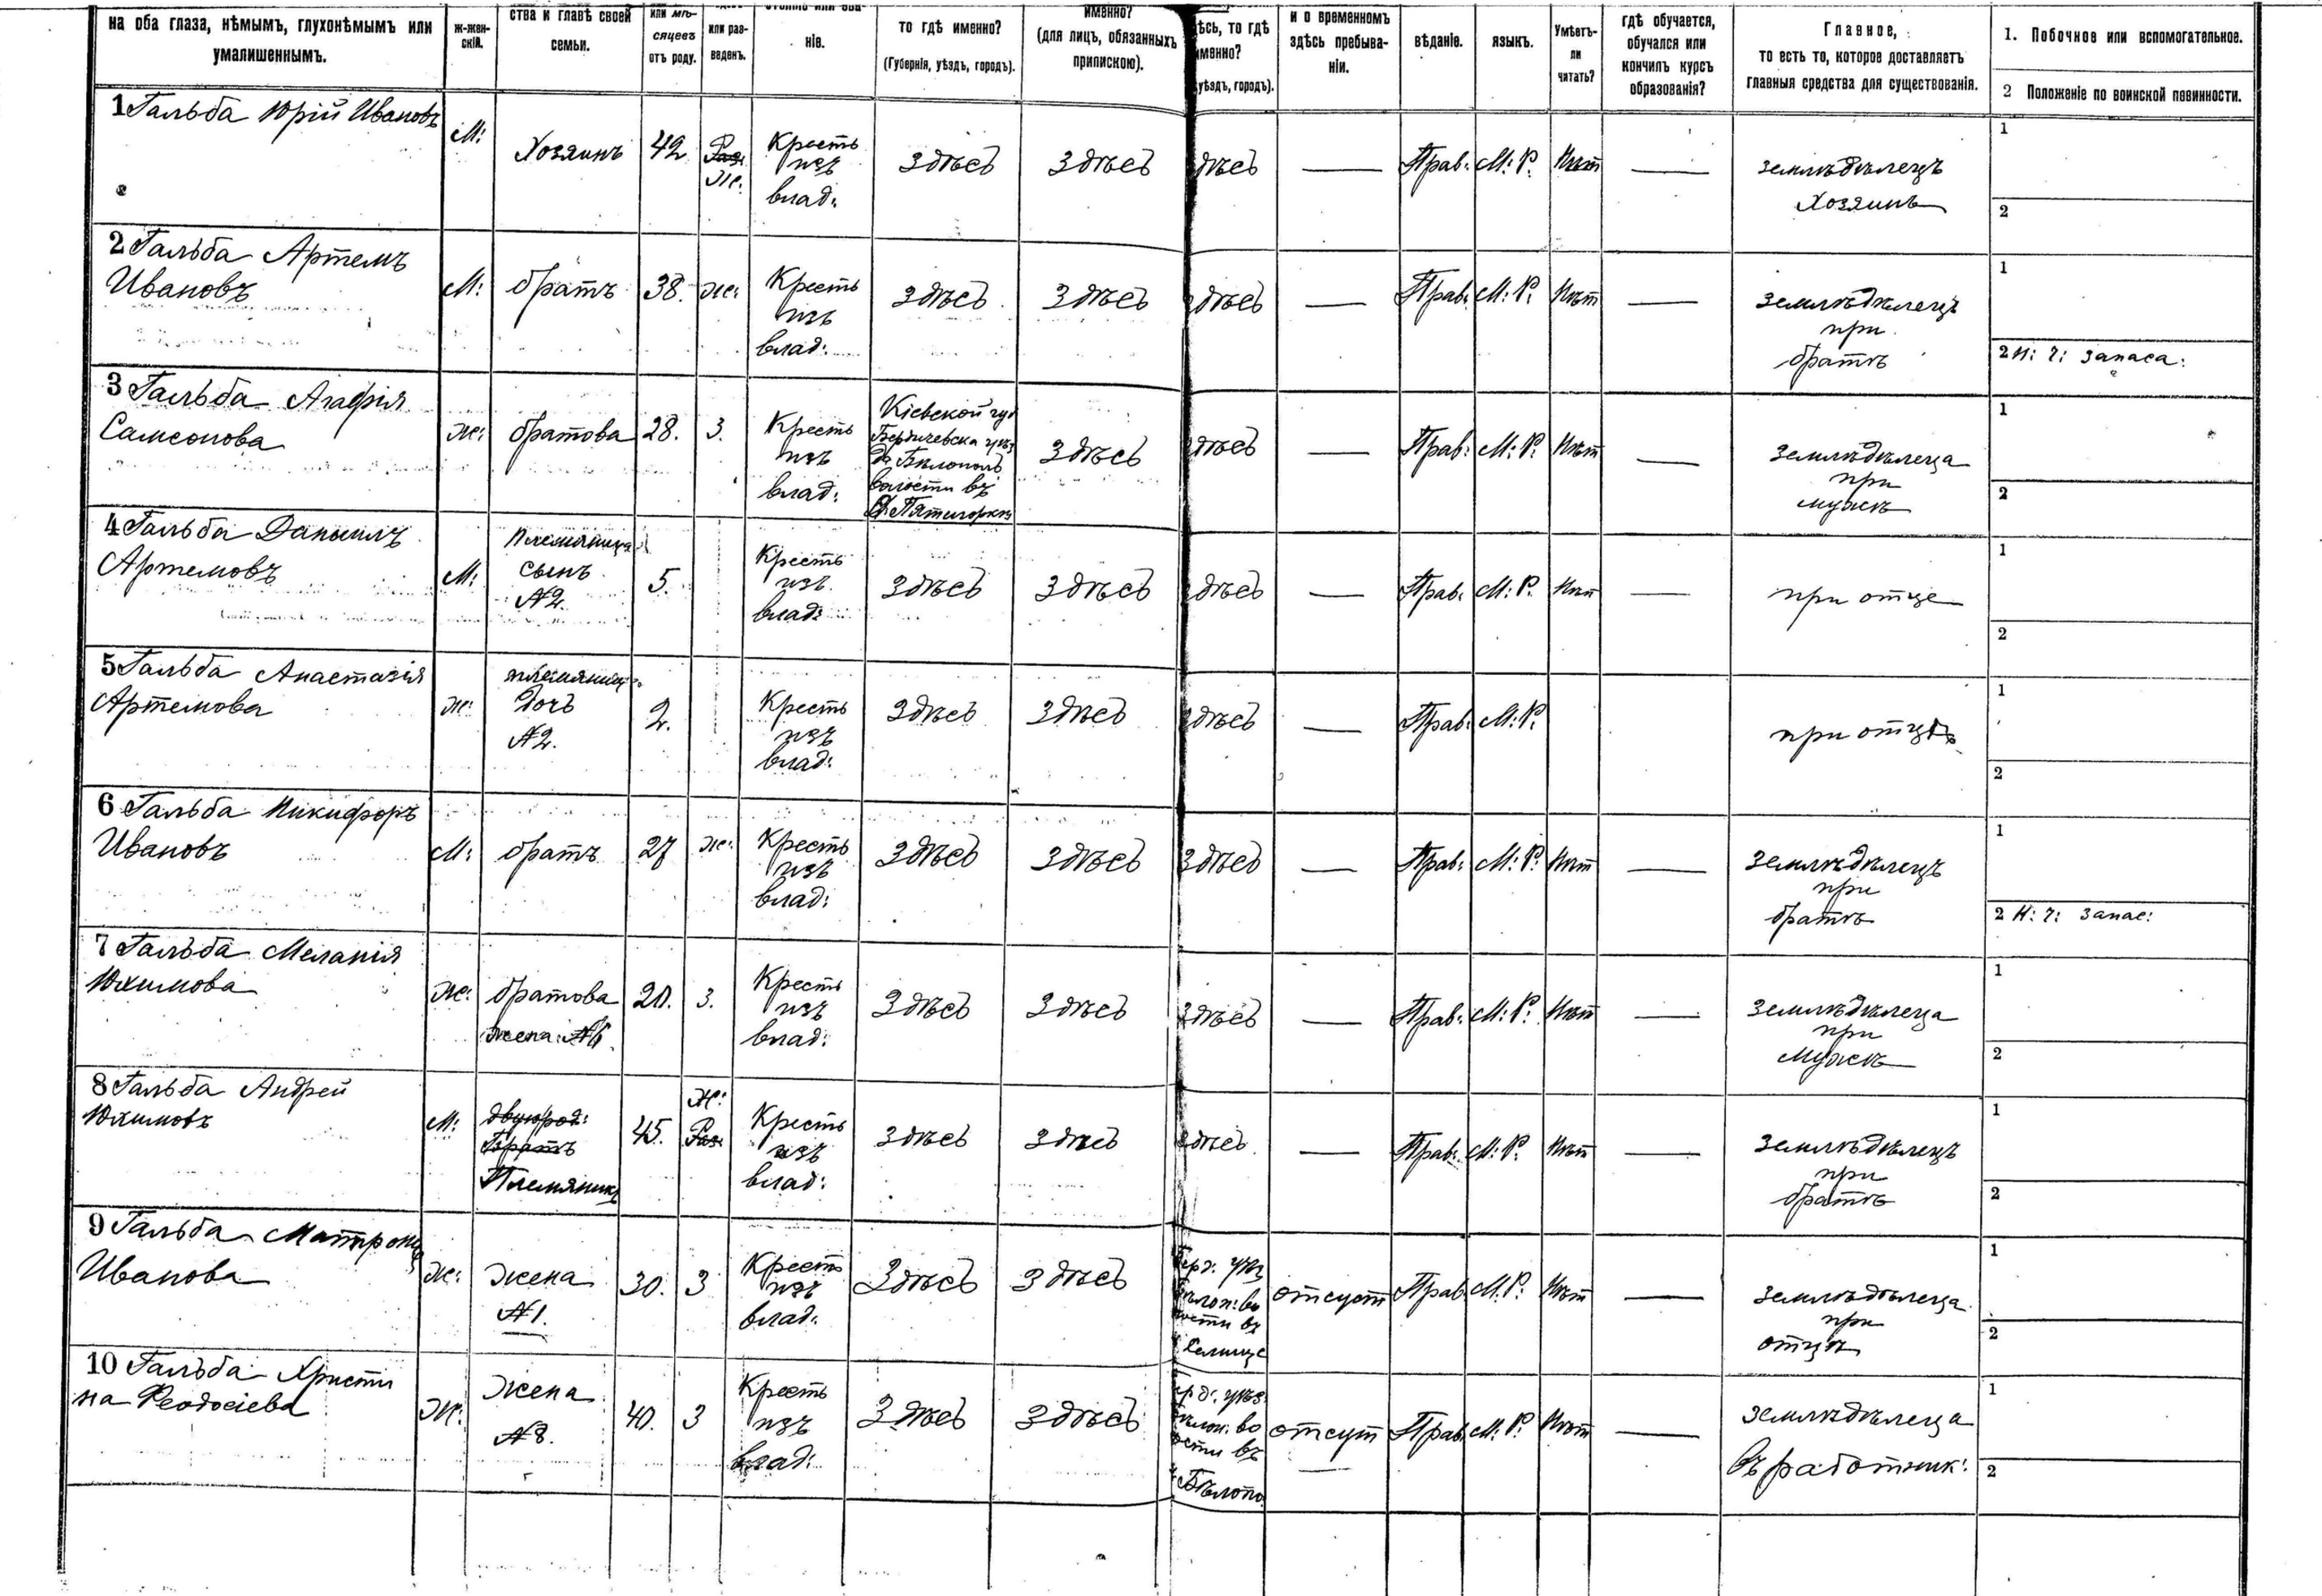 на оба глаза, нѣмымъ, глухонѣмымъ или
умалишеннымъ.
ж-жен-
скій.
ства и главѣ своей
семьи.
или мѣ-
сяцевъ
отъ роду.
или раз-
веденъ.
ніе.
то гдѣ именно?
(Губернія, уѣздъ, городъ).
именно?
(для лицъ, обязанныхъ
припискою).
ѣсь, то гдѣ
именно?
уѣздъ, городъ).
и о временномъ
здѣсь пребыва-
ніи.
вѣданіе.
языкъ.
Умѣетъ-
ли
читать?
гдѣ обучается,
обучался или
кончилъ курсъ
образованія?
Главное,
то есть то, которое доставляетъ
главныя средства для существованія.
1. Побочное или вспомогательное.
2 Положеніе по воинской повинности.
1 Гальба Юрій Ивановъ
М:
Хозяинъ
42
Раз:
Ж:
Кресть
изъ
влад:
Здѣсь
Здѣсь
дѣсь
—
Прав:
М: Р:
Нѣт
—
земледѣлецъ
Хозяинъ
1
2
2 Гальба Артемъ
Ивановъ
М:
братъ
38.
Ж:
Кресть
изъ
влад:
Здѣсь
Здѣсь
здѣсь
—
Прав:
М: Р:
Нѣт
—
землѣдѣлецъ
при
братѣ
1
2 Н: Ч: запаса:
3 Гальба Агафія
Самсонова
Ж:
братова
28.
З.
Кресть
изъ
влад:
Кіевской губ
Бердичевска уѣз
Бѣлополь
волости въ
С. Пятигорка
Здѣсь
здѣсь
—
Прав:
М: Р:
Нѣт
—
землѣдѣлеца
при
мужѣ
1
2
4 Гальба Данылъ
Артемовъ
М:
племяница
сынъ
№2.
5.
Кресть
изъ
влад:
Здѣсь
Здѣсь
здѣсь
—
Прав:
М: Р:
Нѣт
—
при отце
1
2
5 Гальба Анастазія
Артемова
Ж:
племяница
дочь
№2.
2.
Кресть
изъ
влад:
Здѣсь
Здѣсь
здѣсь
—
Прав:
М: Р:
при отцѣ
1
2
6 Гальба Никифоръ
Ивановъ
М:
братъ
27
Ж:
Кресть
изъ
влад:
Здѣсь
Здѣсь
Здѣсь
—
Прав:
М: Р:
Нѣт
—
землѣдѣлецъ
при
братѣ
1
2 Н: Ч: запас:
7 Гальба Меланія
Юхимова
Ж:
братова
жена №6
20.
З.
Кресть
изъ
влад:
Здѣсь
Здѣсь
Здѣсь
—
Прав:
М: Р:
Нѣт
—
землѣдѣлеца
при
мужѣ
1
2
8 Гальба Андрей
Юхимовъ
М:
двуюрод:
Братъ
Племяникъ
45.
Ж:
Раз:
Кресть
изъ
влад:
Здѣсь
Здѣсь
здѣсь
—
Прав:
М: Р:
Нѣт
—
землѣдѣлецъ
при
братѣ
1
2
9 Гальба Матрона
Иванова
Ж:
жена
№1.
30.
З
Кресть
изъ
влад:
Здѣсь
Здѣсь
Берд: уѣз
ости въ
Селище
отсут
Прав:
М: Р:
Нѣт
—
землѣдѣлеца
при
отцѣ
1
2
10 Гальба Христи
на Феодосіева
Ж:
жена
№8.
40.
З
Кресть
изъ
влад:
Здѣсь
Здѣсь
ерд: уѣз.
ости въ
Бѣлопо
отсут
—
Прав:
М: Р:
Нѣт
—
землѣдѣлеца
въ работник:
1
2